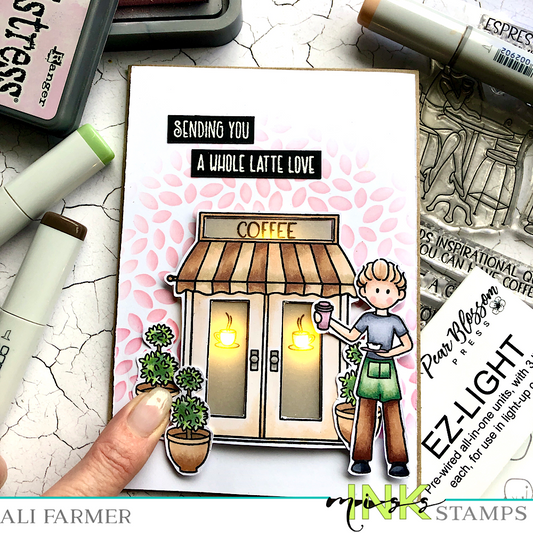 stress
Ranger
ESPRES
SENDING YOU
A WHOLE LATTE LOVE
COFFEE
INSPIRATIONAL
YOU CAN
COFFEE
Pear Blossom
PRESS
EZ-LIGHT
Pre-wired all-in-one units, with 3
each, for use in light-up
ALI FARMER
miss
INK
STAMPS